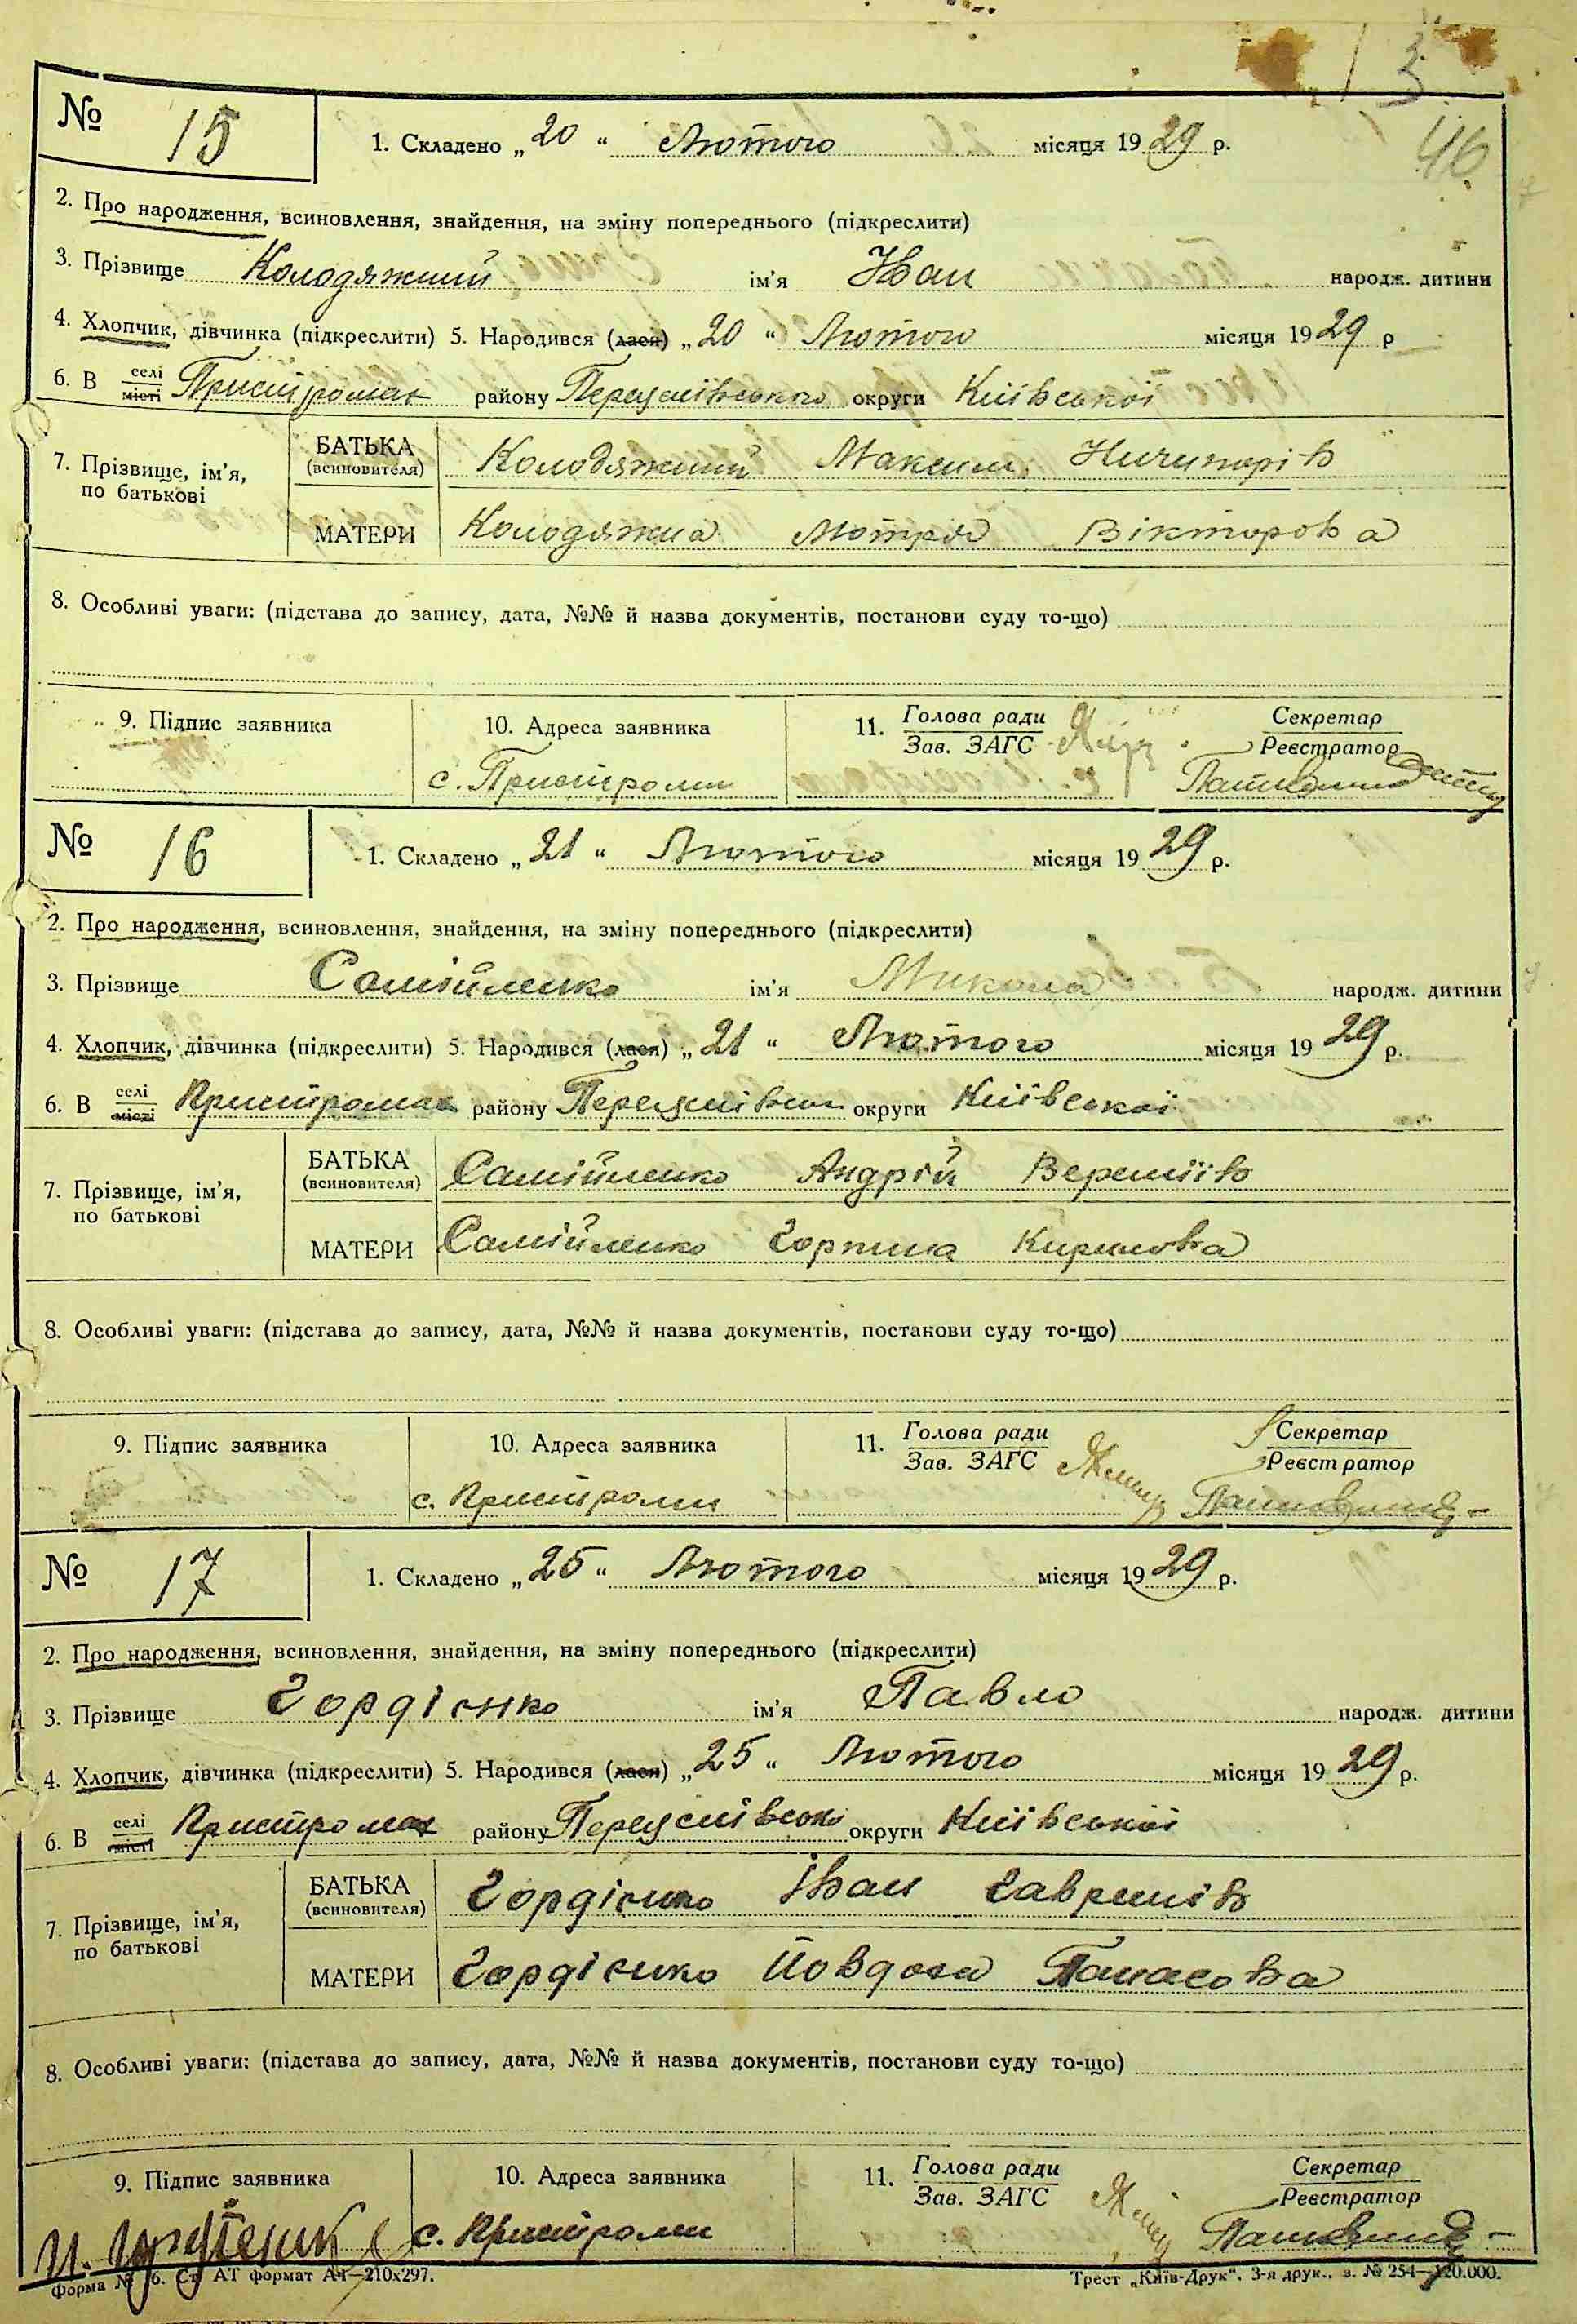 3
46
№ 15
1. Складено „20“ Лютого місяця 1929 р.
2. Про народження, всиновлення, знайдення, на зміну попереднього (підкреслити)
3. Прізвище Колодяжний ім'я Іван народж. дитини
4. Хлопчик, дівчинка (підкреслити) 5. Народився (лася) „20“ Лютого місяця 1929 р
6. В селі місті Пристромах району Переяслівського округи Київської
7. Прізвище, ім'я, по батькові
БАТЬКА (всиновителя) Колодяжний Максим Ничипорів
МАТЕРИ Колодяжна Мотря Вікторова
8. Особливі уваги: (підстава до запису, дата, №№ й назва документів, постанови суду то-що)
9. Підпис заявника 10. Адреса заявника 11. Голова ради Зав. ЗАГС Секретар Реєстратор
с. Пристроми
№ 16
1. Складено „21“ Лютого місяця 1929 р.
2. Про народження, всиновлення, знайдення, на зміну попереднього (підкреслити)
3. Прізвище Самійленко ім'я Микола народж. дитини
4. Хлопчик, дівчинка (підкреслити) 5. Народився (лася) „21“ Лютого місяця 1929 р.
6. В селі місті Пристромах району Переяслівськ округи Київської
7. Прізвище, ім'я, по батькові
БАТЬКА (всиновителя) Самійленко Андрій Вереміїв
МАТЕРИ Самійленко Горпина Кирилова
8. Особливі уваги: (підстава до запису, дата, №№ й назва документів, постанови суду то-що)
9. Підпис заявника 10. Адреса заявника 11. Голова ради Зав. ЗАГС Секретар Реєстратор
с. Пристроми
№ 17
1. Складено „25“ Лютого місяця 1929 р.
2. Про народження, всиновлення, знайдення, на зміну попереднього (підкреслити)
3. Прізвище Гордієнко ім'я Павло народж. дитини
4. Хлопчик, дівчинка (підкреслити) 5. Народився (лася) „25“ Лютого місяця 1929 р.
6. В селі місті Пристромах району Переяслівсько округи Київської
7. Прізвище, ім'я, по батькові
БАТЬКА (всиновителя) Гордієнко Іван Гаврилів
МАТЕРИ Гордієнко Йовдоха Панасова
8. Особливі уваги: (підстава до запису, дата, №№ й назва документів, постанови суду то-що)
9. Підпис заявника 10. Адреса заявника 11. Голова ради Зав. ЗАГС Секретар Реєстратор
с. Пристроми
Форма № 6. Ст. АТ формат А4—210x297. Трест „Київ-Друк“. 3-я друк., з. № 254—120.000.